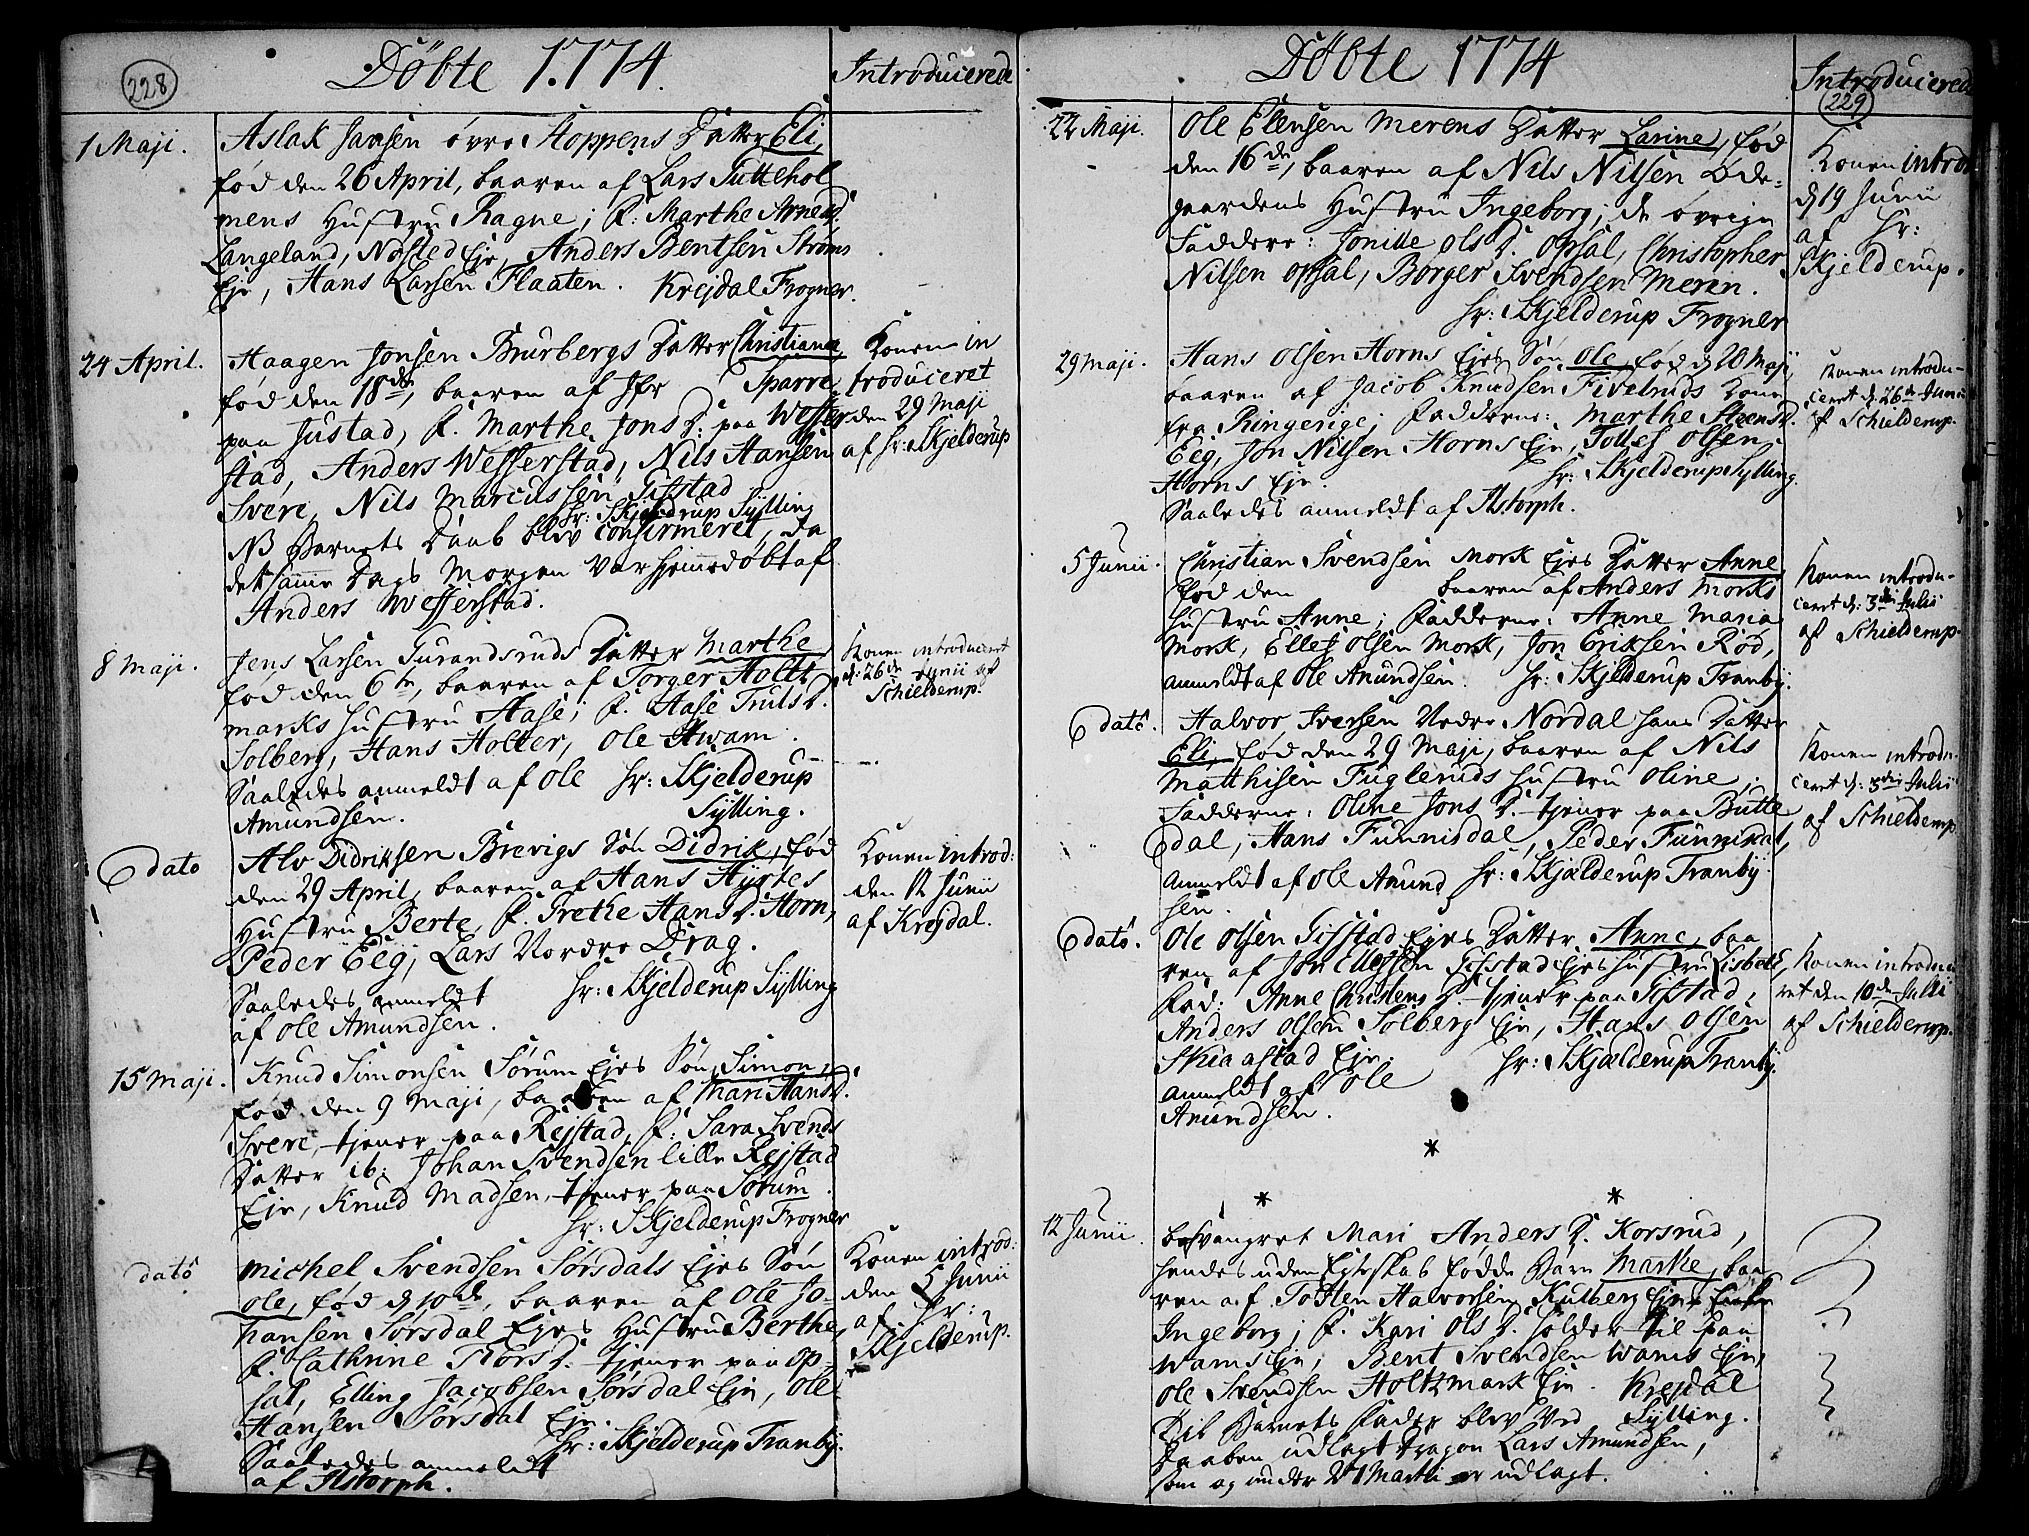 228
Döbte 1774.
Introducerede
1 Maji.
Aslak Jansen övre Stoppens Datter Eli,
föd den 26 April, baaren af Lars Tuttehol
mens Hustru Ragne; F. Marthe Arnesd.
Langeland, Nøsted Eje, Anders Bentsen Strøms
Eje, Hans Larsen Flaaten. Krejdal Frogner.
24 April.
Haagen Jonsen Burbergs Datter Christiana,
föd den 18de, baaren af Jfr Sparre
paa Justad, F. Marthe Jons D. paa Wesser
stad, Anders Wesserstad, Nils Hansen
Svere, Nils Marcussen Gifstad
Hr: Skjelderup Sylling
NB Barnets Daab blev confirmeret, da
det samme Dags Morgen var hjemmedöbt af
Anders Wesserstad.
Konen in
troduceret
den 29 Maji
af Hr: Skjelderup
8 Maji.
Jens Larsen Gurandsruds Datter Marthe
föd den 6te, baaren af Torger Holtt
marks Hustru Aase; F. Aase Truls D.
Solberg, Hans Holter, Ole Hwam.
Saaledes anmeldt af Ole Hr: Skjelderup
Amundsen. Sylling.
Konen introduceret
d: 26de Junii af
Schielderup.
dato
Alv Didriksen Brevigs Sön Didrik, föd
den 29 April, baaren af Hans Hyrtes
Hustru Berte, F. Grethe Hans D. Horn,
Peder Eeg, Lars Nordre Drag.
Saaledes anmeldt Hr: Skjelderup Sylling
af Ole Amundsen.
Konen introd:
den 12 Junii
af Krejdal.
15 Maji.
Knud Simonsen Sørum Ejes Sön Simon,
föd den 9 Maji, baaren af Mari Hans D.
Svere, tjener paa Rejstad, F: Sara Svends
Datter ib: Johan Svendsen lille Rejstad
Eje, Knud Madsen, tjener paa Sørum.
Hr: Skjelderup Frogner
dato
Michel Svendsen Sørsdals Ejes Sön
Ole, föd d 10de, baaren af Ole Jo-
hansen Sørsdal Ejes Hustru Berthe,
F. Cathrine Thors D. tjener paa Op-
sal, Elling Jacobsen Sørsdal Eje, Ole
Hansen Sørsdal Eje.
Hr: Skjelderup Tranby.
Saaledes anmeldt
af Astorph.
Konen introd:
den 5 Junii
af Hr:
Skjelderup.
229
Döbte 1774
Introducerede
22 Maji.
Ole Elensen Merens Datter Larine, föd
den 16de, baaren af Nils Nilsen Öde-
gaardens Hustru Ingeborg; de övrige
Faddere: Jonille Ols D. Opsal, Christopher
Nilsen Opsal, Borger Svendsen Meren.
Hr: Skjelderup Frogner
Konen introd.
d 19 Junii
af Hr:
Skjelderup.
29 Maji.
Hans Olsen Horns Ejes Sön Ole, föd d 20 Maji,
baaren af Jacob Knudsen Fivelruds Kone
fra Ringerige; Fadderne: Marthe Steens D.
Eeg, Jon Nilsen Horns Eje, Tollef Olsen
Horns Eje. Hr: Skjelderup Sylling.
Saaledes anmeldt af Astorph.
Konen introdu-
ceret d. 26de Junii
af Schielderup.
5 Junii.
Christian Svendsen Mork Ejes Datter Anne,
föd den baaren af Anders Morks
Hustru Anne; Fadderne: Anne Maria
Mork, Ellef Olsen Mork, Jon Eriksen Röd,
anmeldt af Ole Amundsen. Hr: Skjelderup Tranby.
Konen introdu-
ceret d: 3die Julii
af Schielderup.
dato.
Halvor Iversen Nedre Nordal hans Datter
Eli, föd den 29 Maji, baaren af Nils
Matthisen Fugleruds Hustru Oline;
Fadderne: Oline Jons D. tjener paa Butte
dal, Hans Funnisdal, Peder Funnisdal,
anmeldt af Ole Amund Hr: Skjælderup Tranby.
sen.
Konen introdu-
ceret d: 3die Julii
af Schielderup
dato.
Ole Olsen Gifstad Ejes Datter Anne, baa
ren af Jon Ellefsen Gifstad Ejes Hustru Lisbet,
Fad: Anne Christens D. tjener paa Gifstad,
Anders Olsen Solberg Eje, Hans Olsen
Skiaastad Eje. Hr: Skjælderup Tranby.
anmeldt af Ole
Amundsen.
Konen introdu
ret den 10de Julii
af Schielderup.
*
* *
12 Junii.
besvangret Mari Anders D. Korsrud,
hendes uden Egteskab födde Barn Marthe, baa
ren af Tosten Halvorsen Kulberg Ejes
Ingeborg; F. Kari Ols D. holder til paa
Wams Eje, Bent Svendsen Wams Eje,
Ole Svendsen Holtzmark Eje. Krejdal
Til Barnets Fader blev ved Sylling.
Daaben udlagt Dragon Lars Amundsen,
som og under 21 Martii er udlagt.